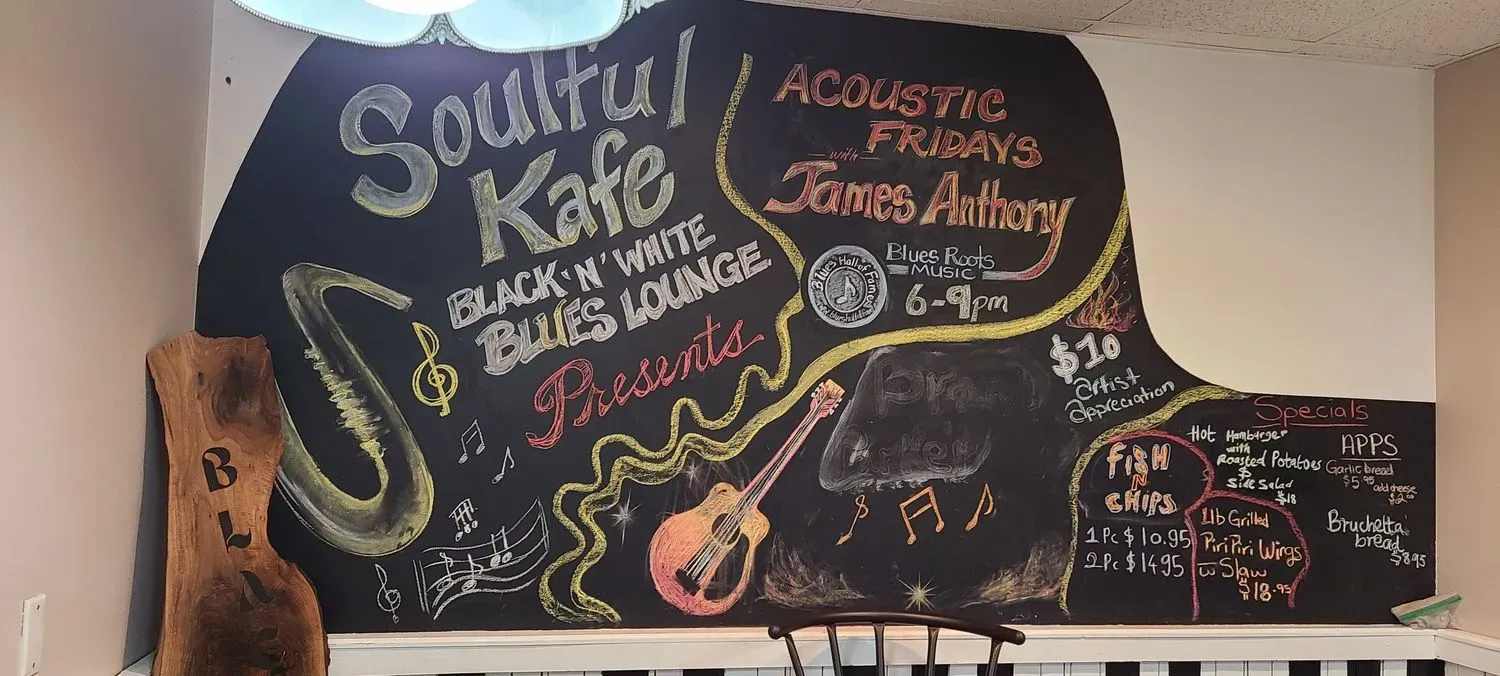 Soulful
Kafe
BLACK 'N' WHITE
BLUES LOUNGE
Presents
ACOUSTIC
FRIDAYS
with
James Anthony
Blues Hall of Fame
Blues Roots
MUSIC
6-9pm
$10
artist
appreciation
FISH
N
CHIPS
1 Pc $10.95
2 Pc $14.95
Specials
Hot Hamburger
with
Roasted Potatoes
$
Side Salad
$18
1lb Grilled
Piri Piri Wings
w Slaw
$18.95
APPS
Garlic bread
$5.95
add cheese
Bruchetta
bread
$8.95
B
L